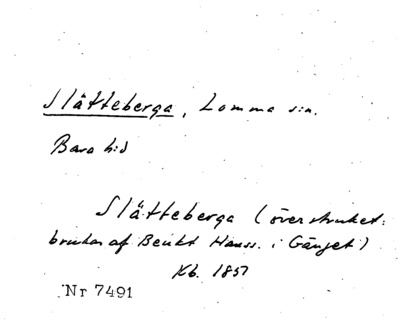 Slätteberga, Lomma sn.
Bara hd
Slätteberga (överstruket:
brukas af Benkt Hanss. i Gänget)
Kb. 1857
Nr 7491